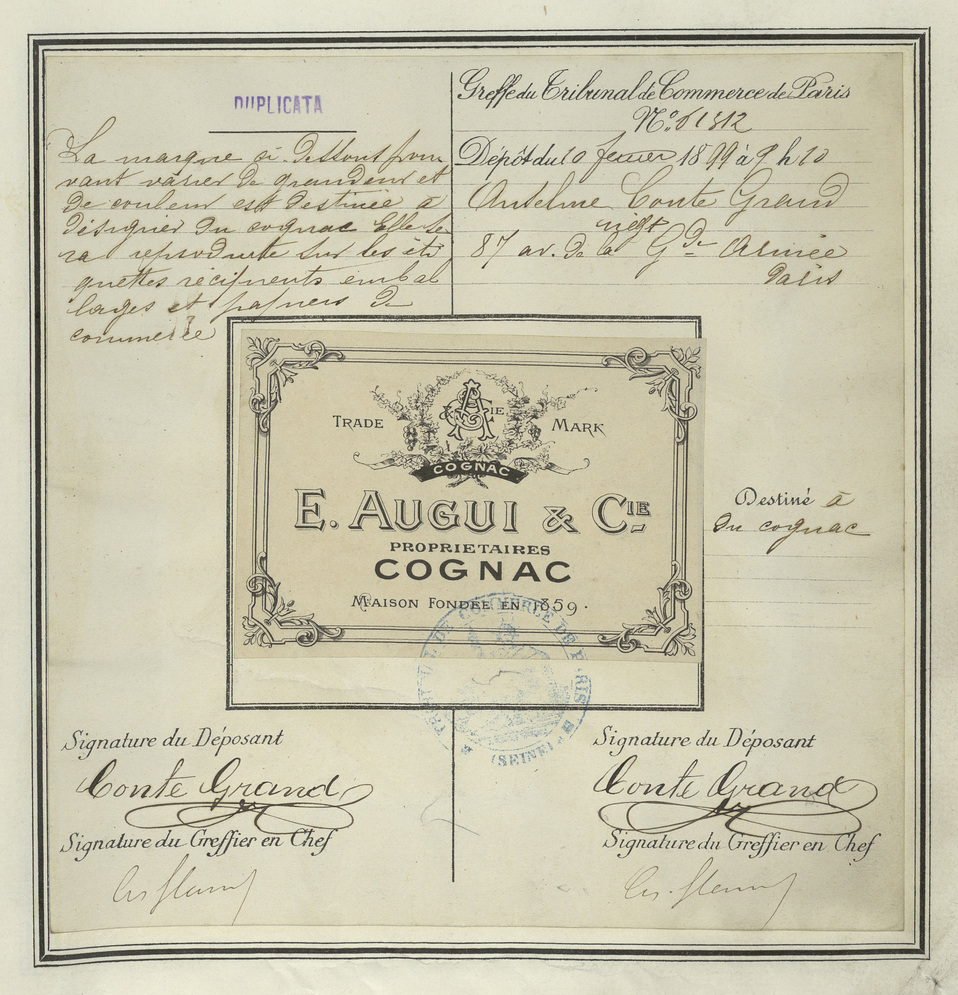 DUPLICATA
La marque ci-dessous pou
vant varier de grandeur et
de couleur est destinée à
désigner du cognac Elle se
ra reproduite sur les éti
quettes récipients embal
lages et papiers de
commerce
Greffe du Tribunal de Commerce de Paris
Dépôt du 10 fevrier 1899 à 9 h 10
Anselme Conte Grand
négt
87 av. de la Gde Armée
Paris
TRADE MARK
CIE
COGNAC
E. AUGUI & CIE
PROPRIETAIRES
COGNAC
MAISON FONDÉE EN 1859.
TRIBUNAL DE COMMERCE DE PARIS
(SEINE)
Destiné à
du cognac
Signature du Déposant
Conte Grand
Signature du Greffier en Chef
Signature du Déposant
Conte Grand
Signature du Greffier en Chef